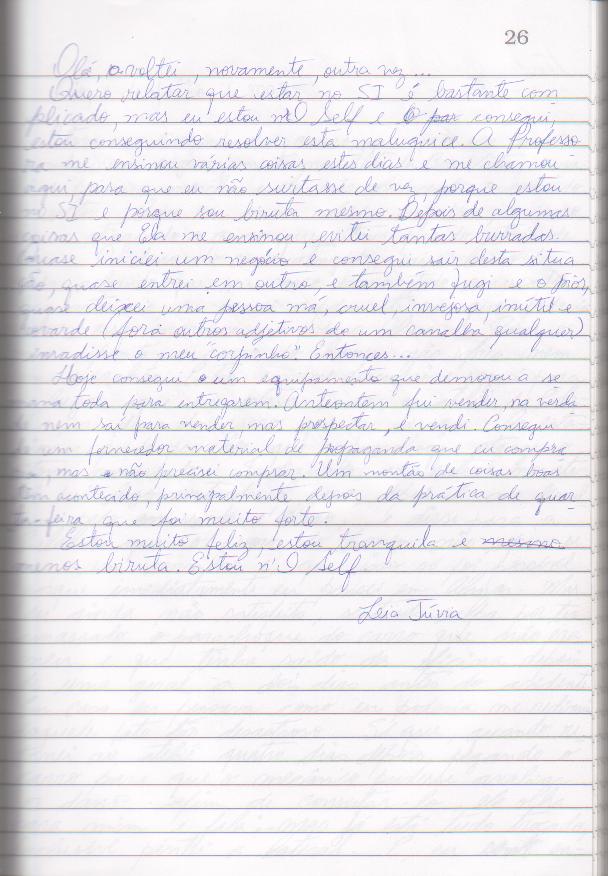 26
Olá, voltei, novamente, outra vez...
Quero relatar que estar no SI é bastante com
plicado, mas eu estou n'O Self e consegui,
estou conseguindo resolver esta maluquice. A Professo
ra me ensinou várias coisas estes dias e me chamou
aqui, para que eu não surtasse de vez, porque estou
no SI e porque sou biruta mesmo. Depois de algumas
coisas que Ela me ensinou, evitei tantas burradas.
Quase iniciei um negócio e consegui sair desta situa
ção, quase entrei em outro, e também fugi e o pior,
quase deixei uma pessoa má, cruel, invejosa, inútil e
covarde (fora outros adjetivos de um canalha qualquer)
invadisse o meu "corpinho". Entonces...
Hoje consegui um equipamento que demorou a se
mana toda para entregarem. Anteontem fui vender, na verda
de nem saí para vender, mas prospectar, e vendi. Consegui
de um fornecedor material de propaganda que eu compra
ria, mas não precisei comprar. Um montão de coisas boas
tem acontecido, principalmente depois da prática de quar
ta-feira, que foi muito forte.
Estou muito feliz, estou tranquila e mesmo
menos biruta. Estou n'O Self.
Leia Túvia